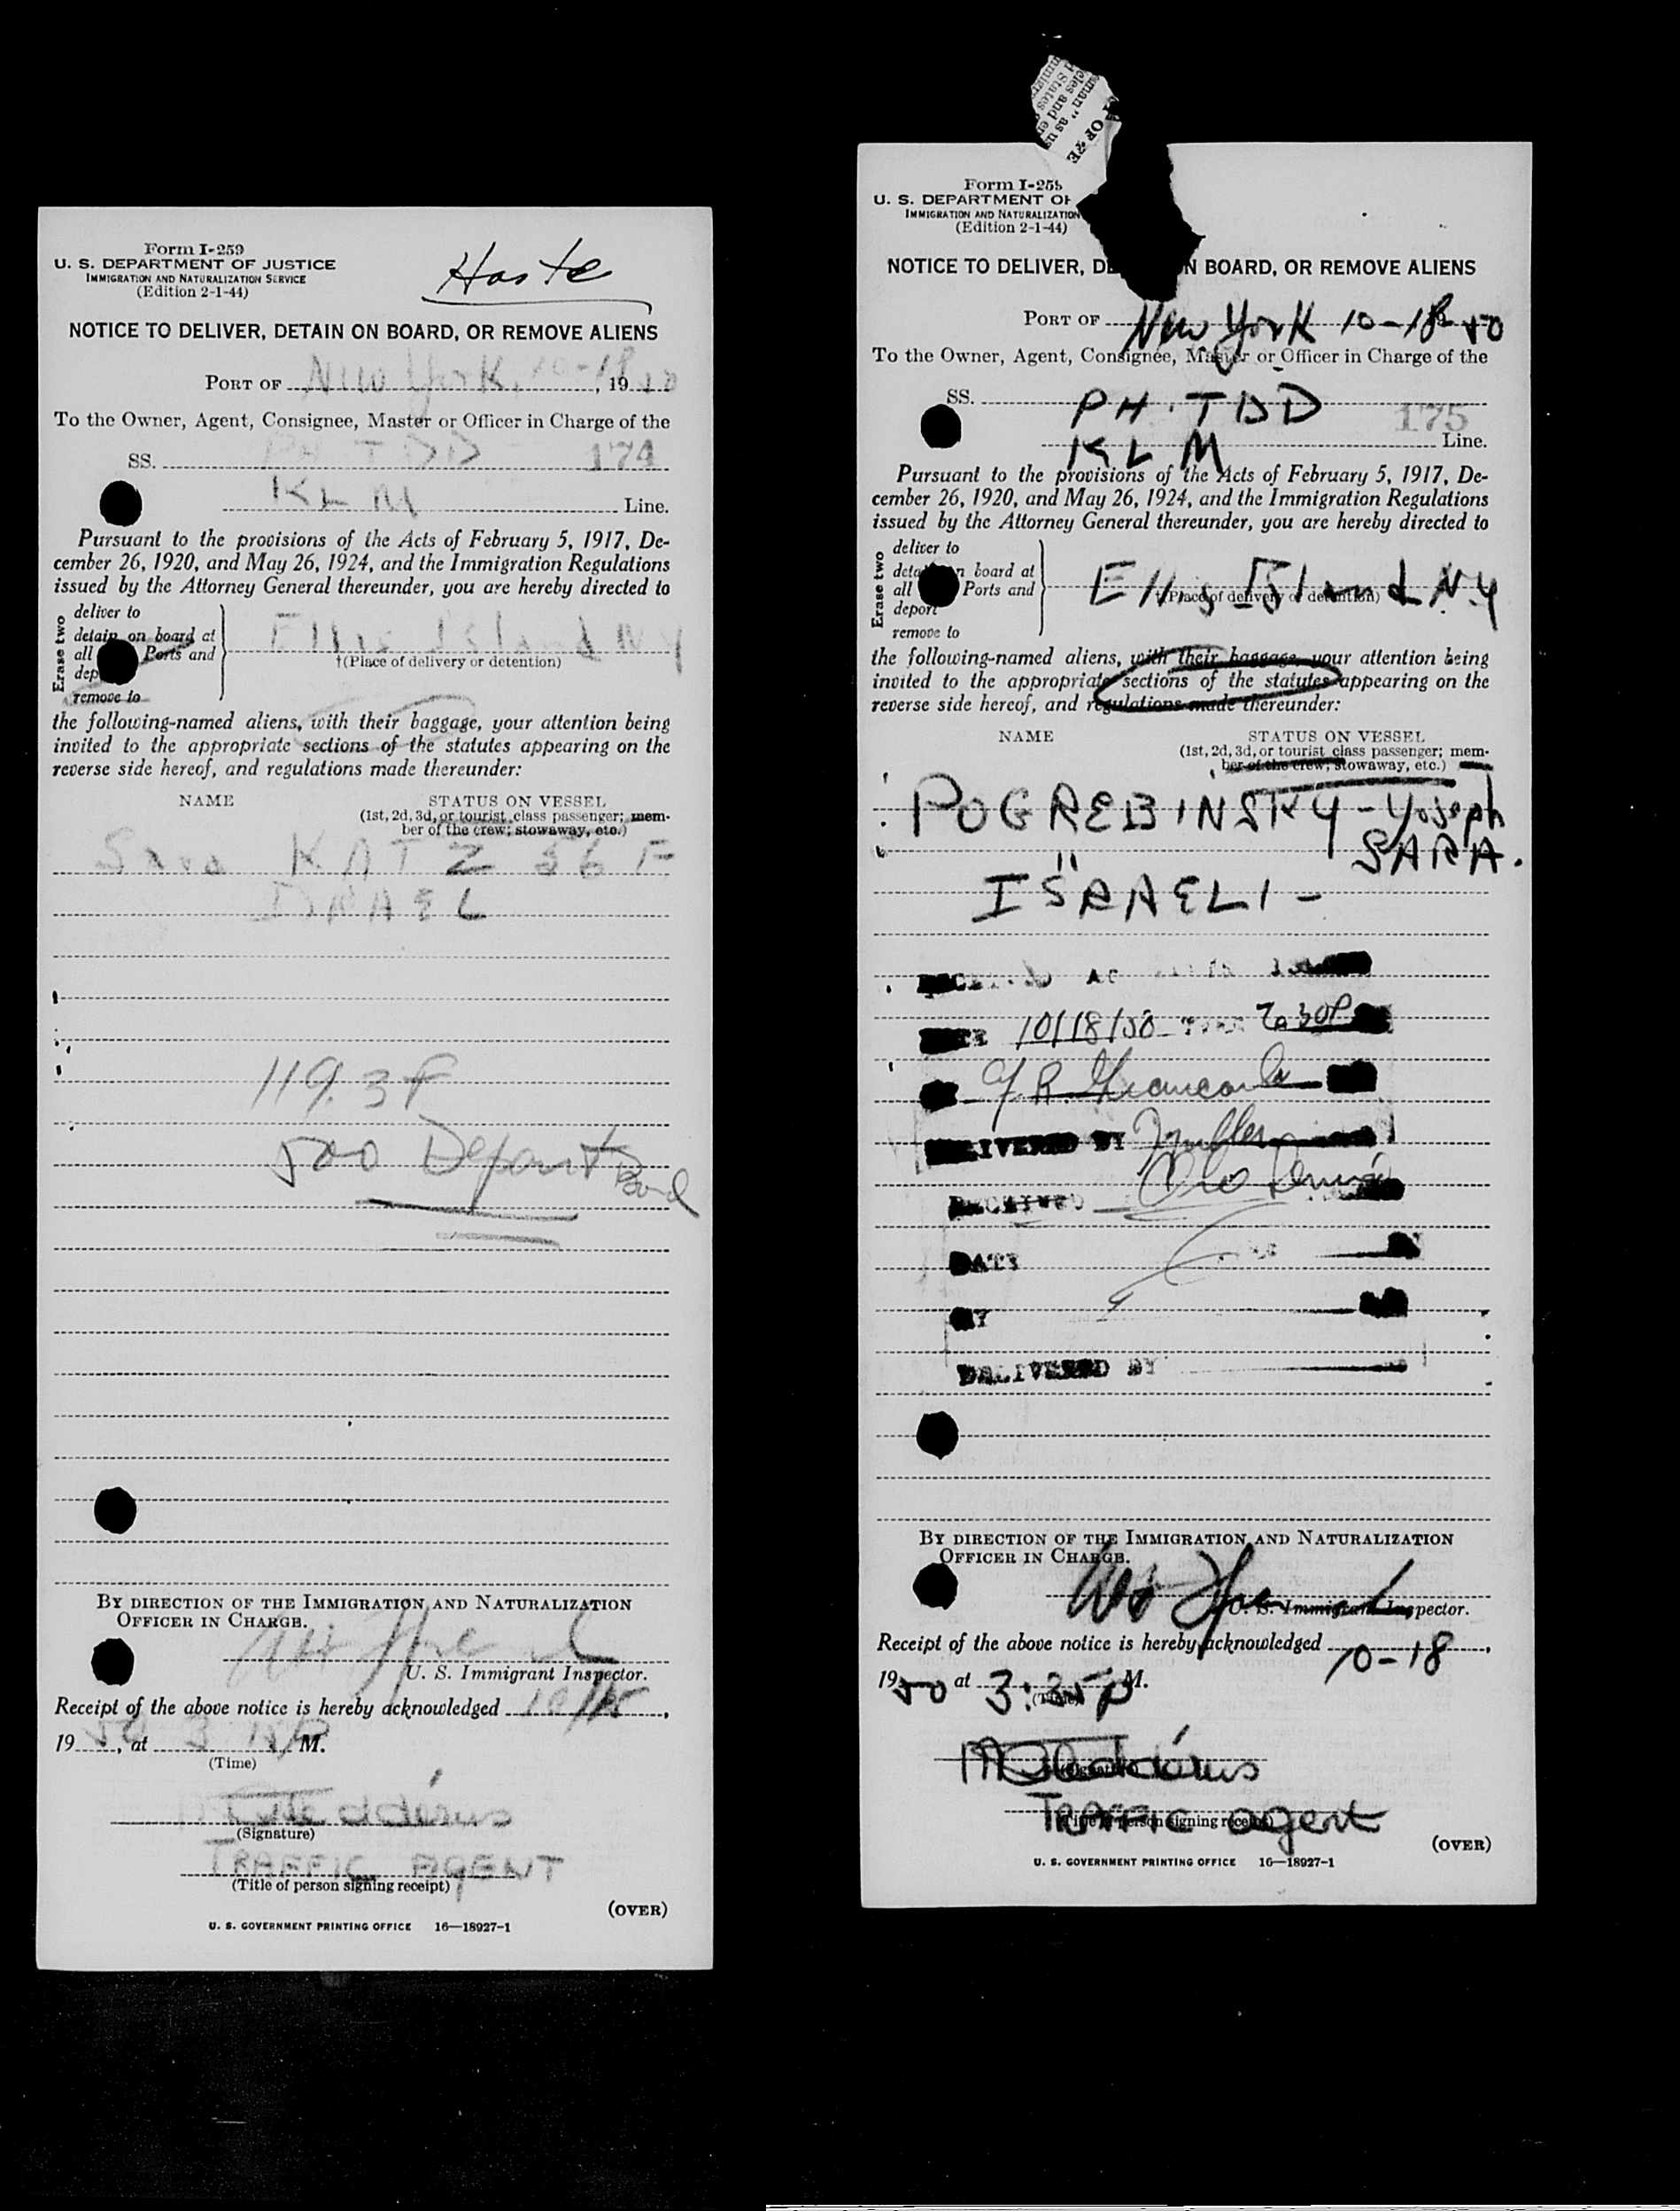 Form I-259
U. S. DEPARTMENT OF JUSTICE
IMMIGRATION AND NATURALIZATION SERVICE
(Edition 2-1-44)
NOTICE TO DELIVER, DETAIN ON BOARD, OR REMOVE ALIENS
PORT OF New York, 10-18, 1950
To the Owner, Agent, Consignee, Master or Officer in Charge of the
SS. PH TDD 174
KLM Line.
Pursuant to the provisions of the Acts of February 5, 1917, De-
cember 26, 1920, and May 26, 1924, and the Immigration Regulations
issued by the Attorney General thereunder, you are hereby directed to
Erase two
deliver to
detain on board at
all Ports and
dep
remove to
Ellis Island NY
†(Place of delivery or detention)
the following-named aliens, with their baggage, your attention being
invited to the appropriate sections of the statutes appearing on the
reverse side hereof, and regulations made thereunder:
NAME STATUS ON VESSEL
(1st, 2d, 3d, or tourist class passenger; mem-
ber of the crew; stowaway, etc.)
Sara KATZ 56 F
ISRAEL
500 Depart Bond
BY DIRECTION OF THE IMMIGRATION AND NATURALIZATION
OFFICER IN CHARGE.
U. S. Immigrant Inspector.
Receipt of the above notice is hereby acknowledged 10/18,
1950, at 3 M.
(Time)
(Signature)
TRAFFIC AGENT
(Title of person signing receipt)
(OVER)
U. S. GOVERNMENT PRINTING OFFICE 16—18927-1
OF
man" as us
eles and er
d States
mmigr
Form I-259
U. S. DEPARTMENT OF
IMMIGRATION AND NATURALIZATION
(Edition 2-1-44)
NOTICE TO DELIVER, DE N BOARD, OR REMOVE ALIENS
PORT OF New York 10-18-50
To the Owner, Agent, Consignee, Master or Officer in Charge of the
SS. PH. TDD 175
KLM Line.
Pursuant to the provisions of the Acts of February 5, 1917, De-
cember 26, 1920, and May 26, 1924, and the Immigration Regulations
issued by the Attorney General thereunder, you are hereby directed to
Erase two
deliver to
deta n board at
all Ports and
deport
remove to
Ellis Island N.Y
†(Place of delivery or detention)
the following-named aliens, with their baggage, your attention being
invited to the appropriate sections of the statutes appearing on the
reverse side hereof, and regulations made thereunder:
NAME STATUS ON VESSEL
(1st, 2d, 3d, or tourist class passenger; mem-
ber of the crew; stowaway, etc.)
POGREBINSKY - Yoseph
" SARA.
ISRAELI -
RECEIVED AT
DATE 10/18/50
DELIVERED BY
RECEIVED
DATE
BY
DELIVERED BY
BY DIRECTION OF THE IMMIGRATION AND NATURALIZATION
OFFICER IN CHARGE.
U. S. Immigrant Inspector.
Receipt of the above notice is hereby acknowledged 10-18,
1950 at 3:35 P M.
(Time)
(Signature)
TRAFFIC agent
(Title of person signing receipt)
(OVER)
U. S. GOVERNMENT PRINTING OFFICE 16—18927-1